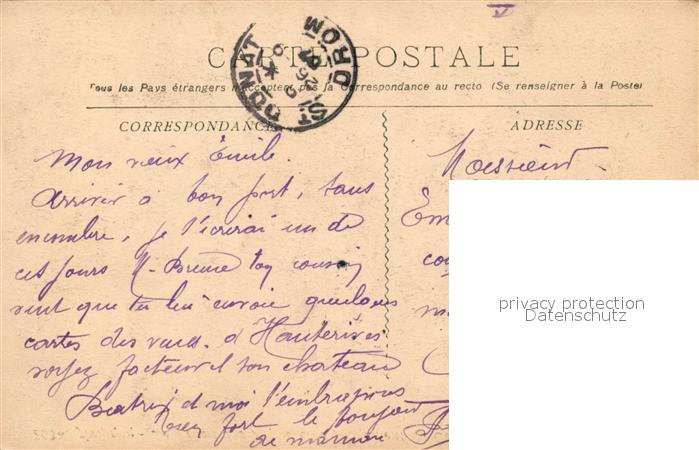 CARTE POSTALE
Tous les Pays étrangers n'acceptent pas la Correspondance au recto (Se renseigner à la Poste)
ST DONAT
DROME
CORRESPONDANCE
Mon vieux Émile.
Arriver à bon port, sans
encombre, je t'écrirai un de
ces jours M. Brune ton cousin
veut que tu lui envoie quelques
cartes des vues d'Hauterives
voyez facteur et son chateau
Béatrix et moi t'embrassons
bien fort le toujours
de maman
ADRESSE
Monsieur
Em
co
m
privacy protection
Datenschutz